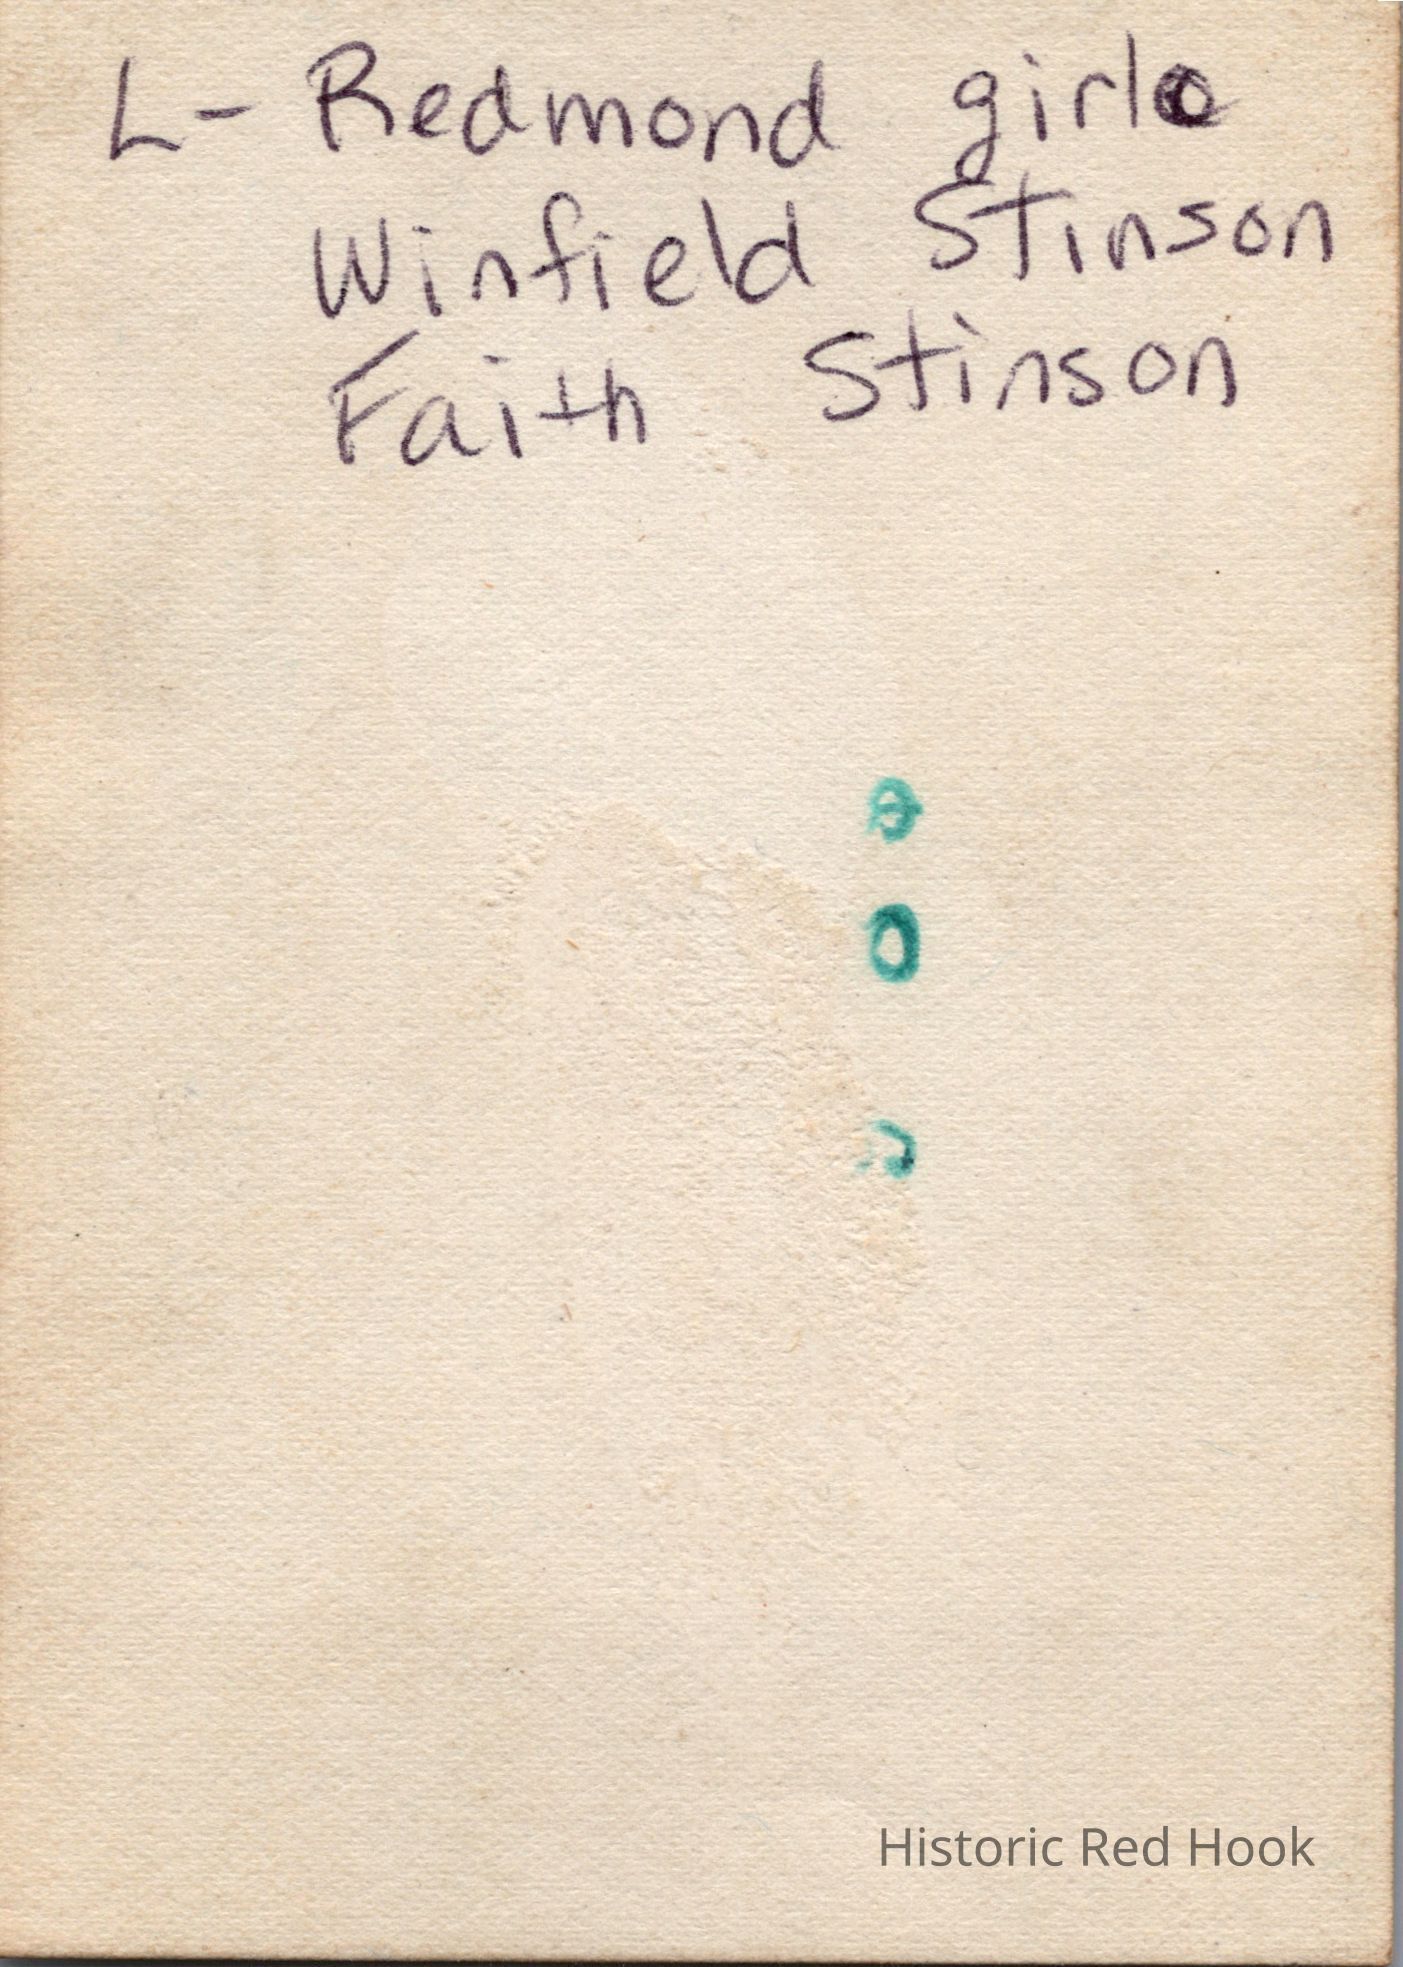 L- Redmond girl
Winfield Stinson
Faith Stinson
Historic Red Hook